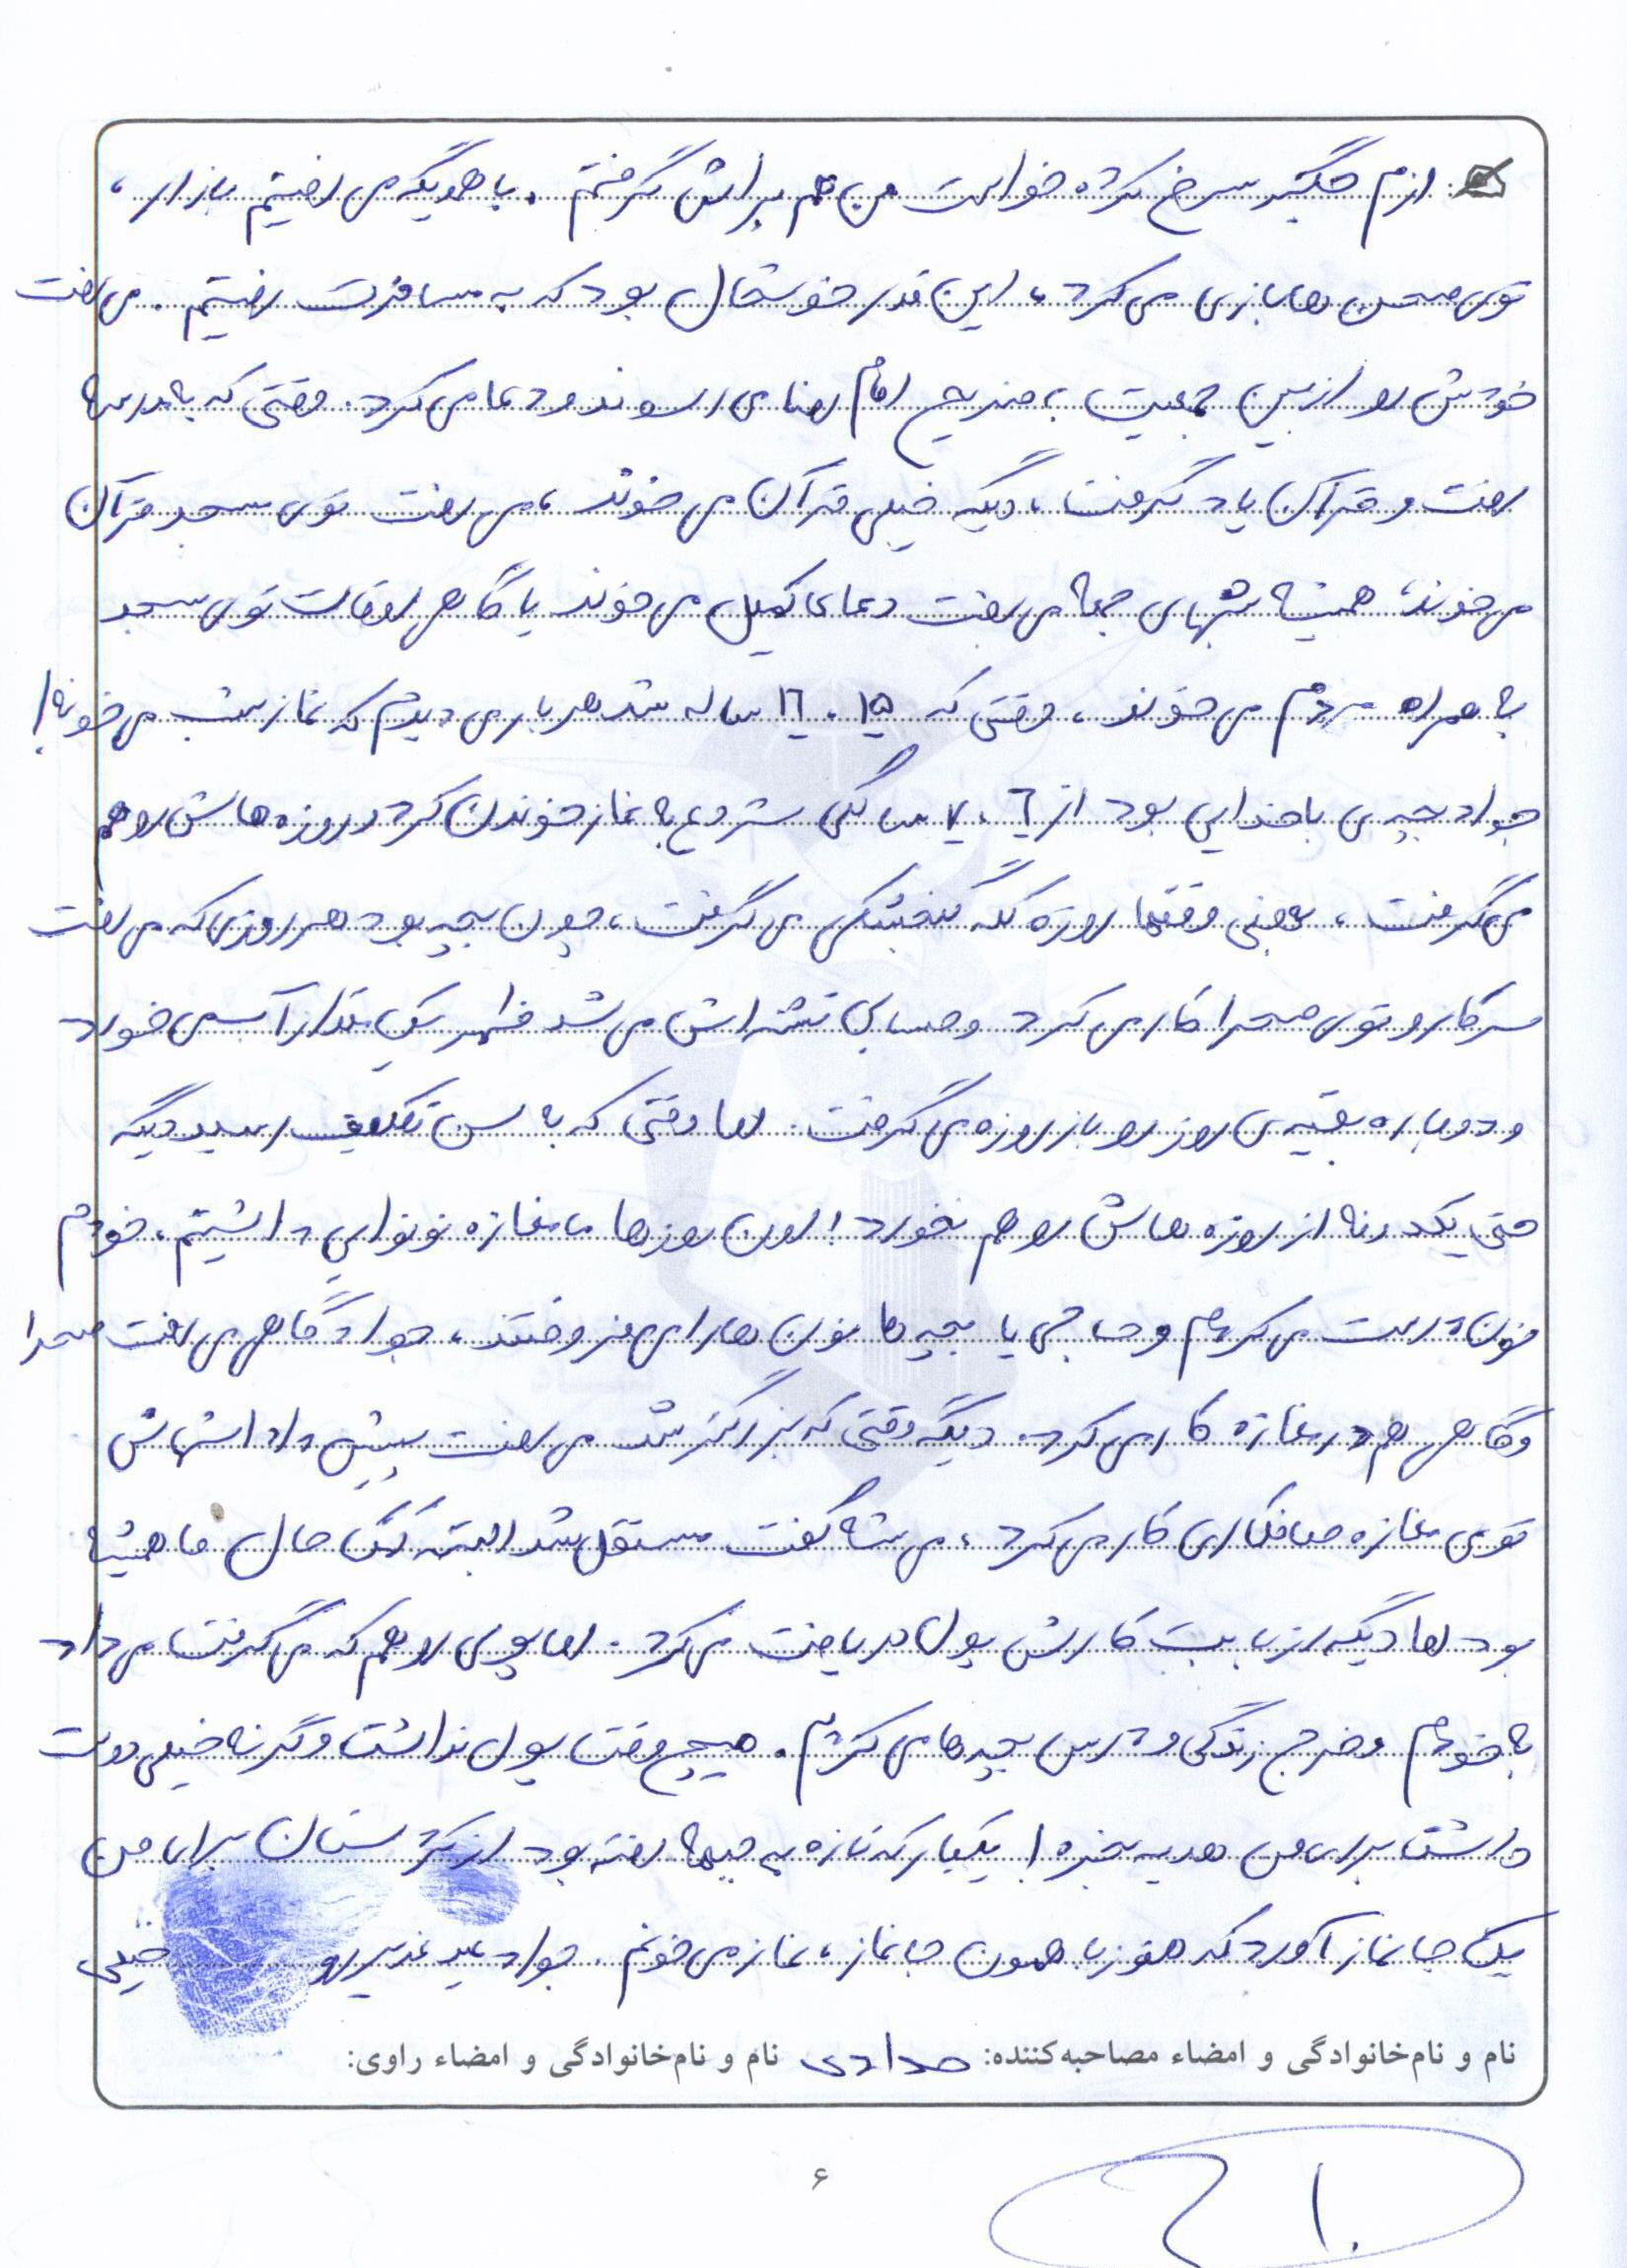 ازم جگر سرخ کرده خواست من هم براش گرفتم. با همدیگه می رفتیم بازار،
توی صحن ها بازی می کرد، این قدر خوشحال بود که به مسافرت رفتیم. می رفت
خودش رو از بین جمعیت به ضریح امام رضا می رسوند و دعا می کرد. وقتی که به مدرسه
رفت و قرآن یاد گرفت، دیگه خیلی قرآن می خوند، می رفت توی مسجد قرآن
می خوند، همیشه شبهای جمعه می رفت دعای کمیل می خوند یا گاهی اوقات توی مسجد
به همراه مردم می خوند، وقتی که ۱۵، ۱۶ ساله شد هر بار می دیدم که نماز شب می خونه!
جواد بچه ی باخدایی بود از ۶، ۷ سالگی شروع به نماز خوندن کرد و روزه هاش رو هم
می گرفت، بعضی وقتها روزه کله گنجشکی می گرفت، چون بچه بود هر روزی که می رفت
سر کار و توی صحرا کار می کرد و حسابی تشنه اش می شد ظهر یک مقدار آب می خورد
و دوباره بقیه ی روز رو باز روزه می گرفت. اما وقتی که به سن تکلیف رسید دیگه
حتی یکدونه از روزه هاش رو هم نخورد! اون روزها ما مغازه نونوایی داشتیم، خودم
نون درست می کردم و حاجی یا بچه ها نون ها را می فروختند، جواد گاهی می رفت صحرا
و گاهی هم در مغازه کار می کرد. دیگه وقتی که بزرگتر شد می رفت پیش داداشهاش
توی مغازه صافکاری کار می کرد، می شه گفت مستقل شد البته کمک حال ما همیشه
بود اما دیگه از بابت کارش پول دریافت می کرد. اما پولی رو هم که می گرفت می داد
به خودم و خرج زندگی و درس بچه ها می کردیم. هیچ وقت پول نداشت وگرنه خیلی دوست
داشت برای من هدیه بخره! یکبار که تازه به جبهه رفته بود از کردستان برای من
یک جانماز آورد که هنوز با همون جانماز، نماز می خونم. جواد عید غدیر رو خیلی
نام و نام‌خانوادگی و امضاء مصاحبه‌کننده: حدادی نام و نام‌خانوادگی و امضاء راوی:
۶